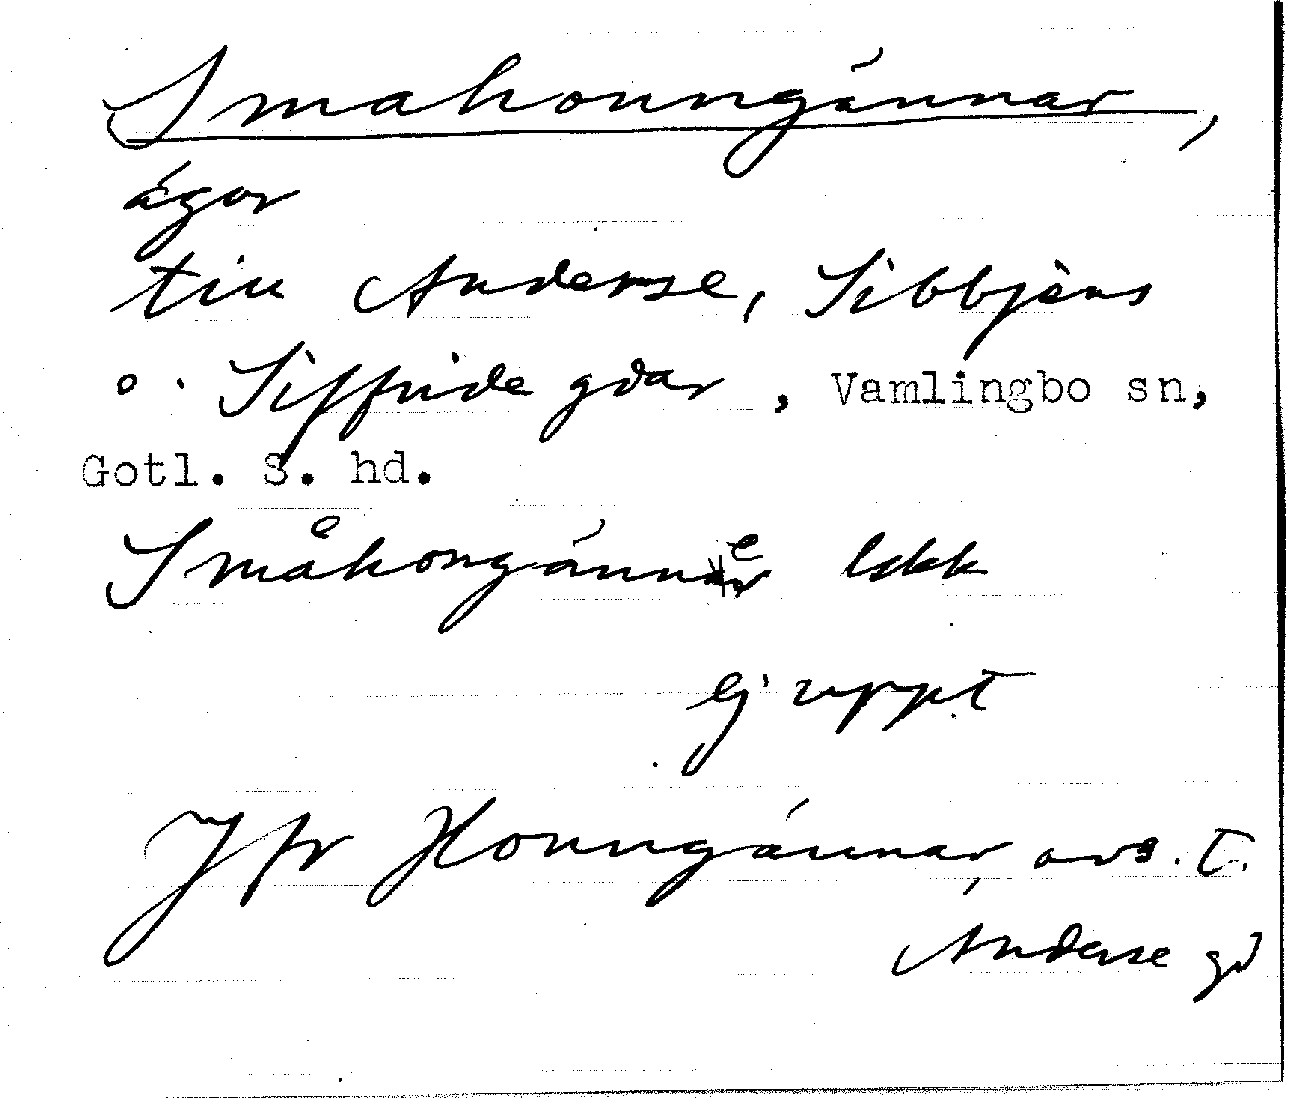 Smahonngánnar,
ägor
till Anderse, Sibbjens
o. Siffride gdar, Vamlingbo sn,
Gotl. S. hd.
Småhongánner lskk
ej uppt
Jfr Honngánnar, avs. t.
Anderse gd